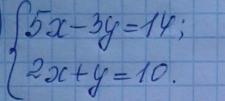 5x-3y=14;
2x+y=10.